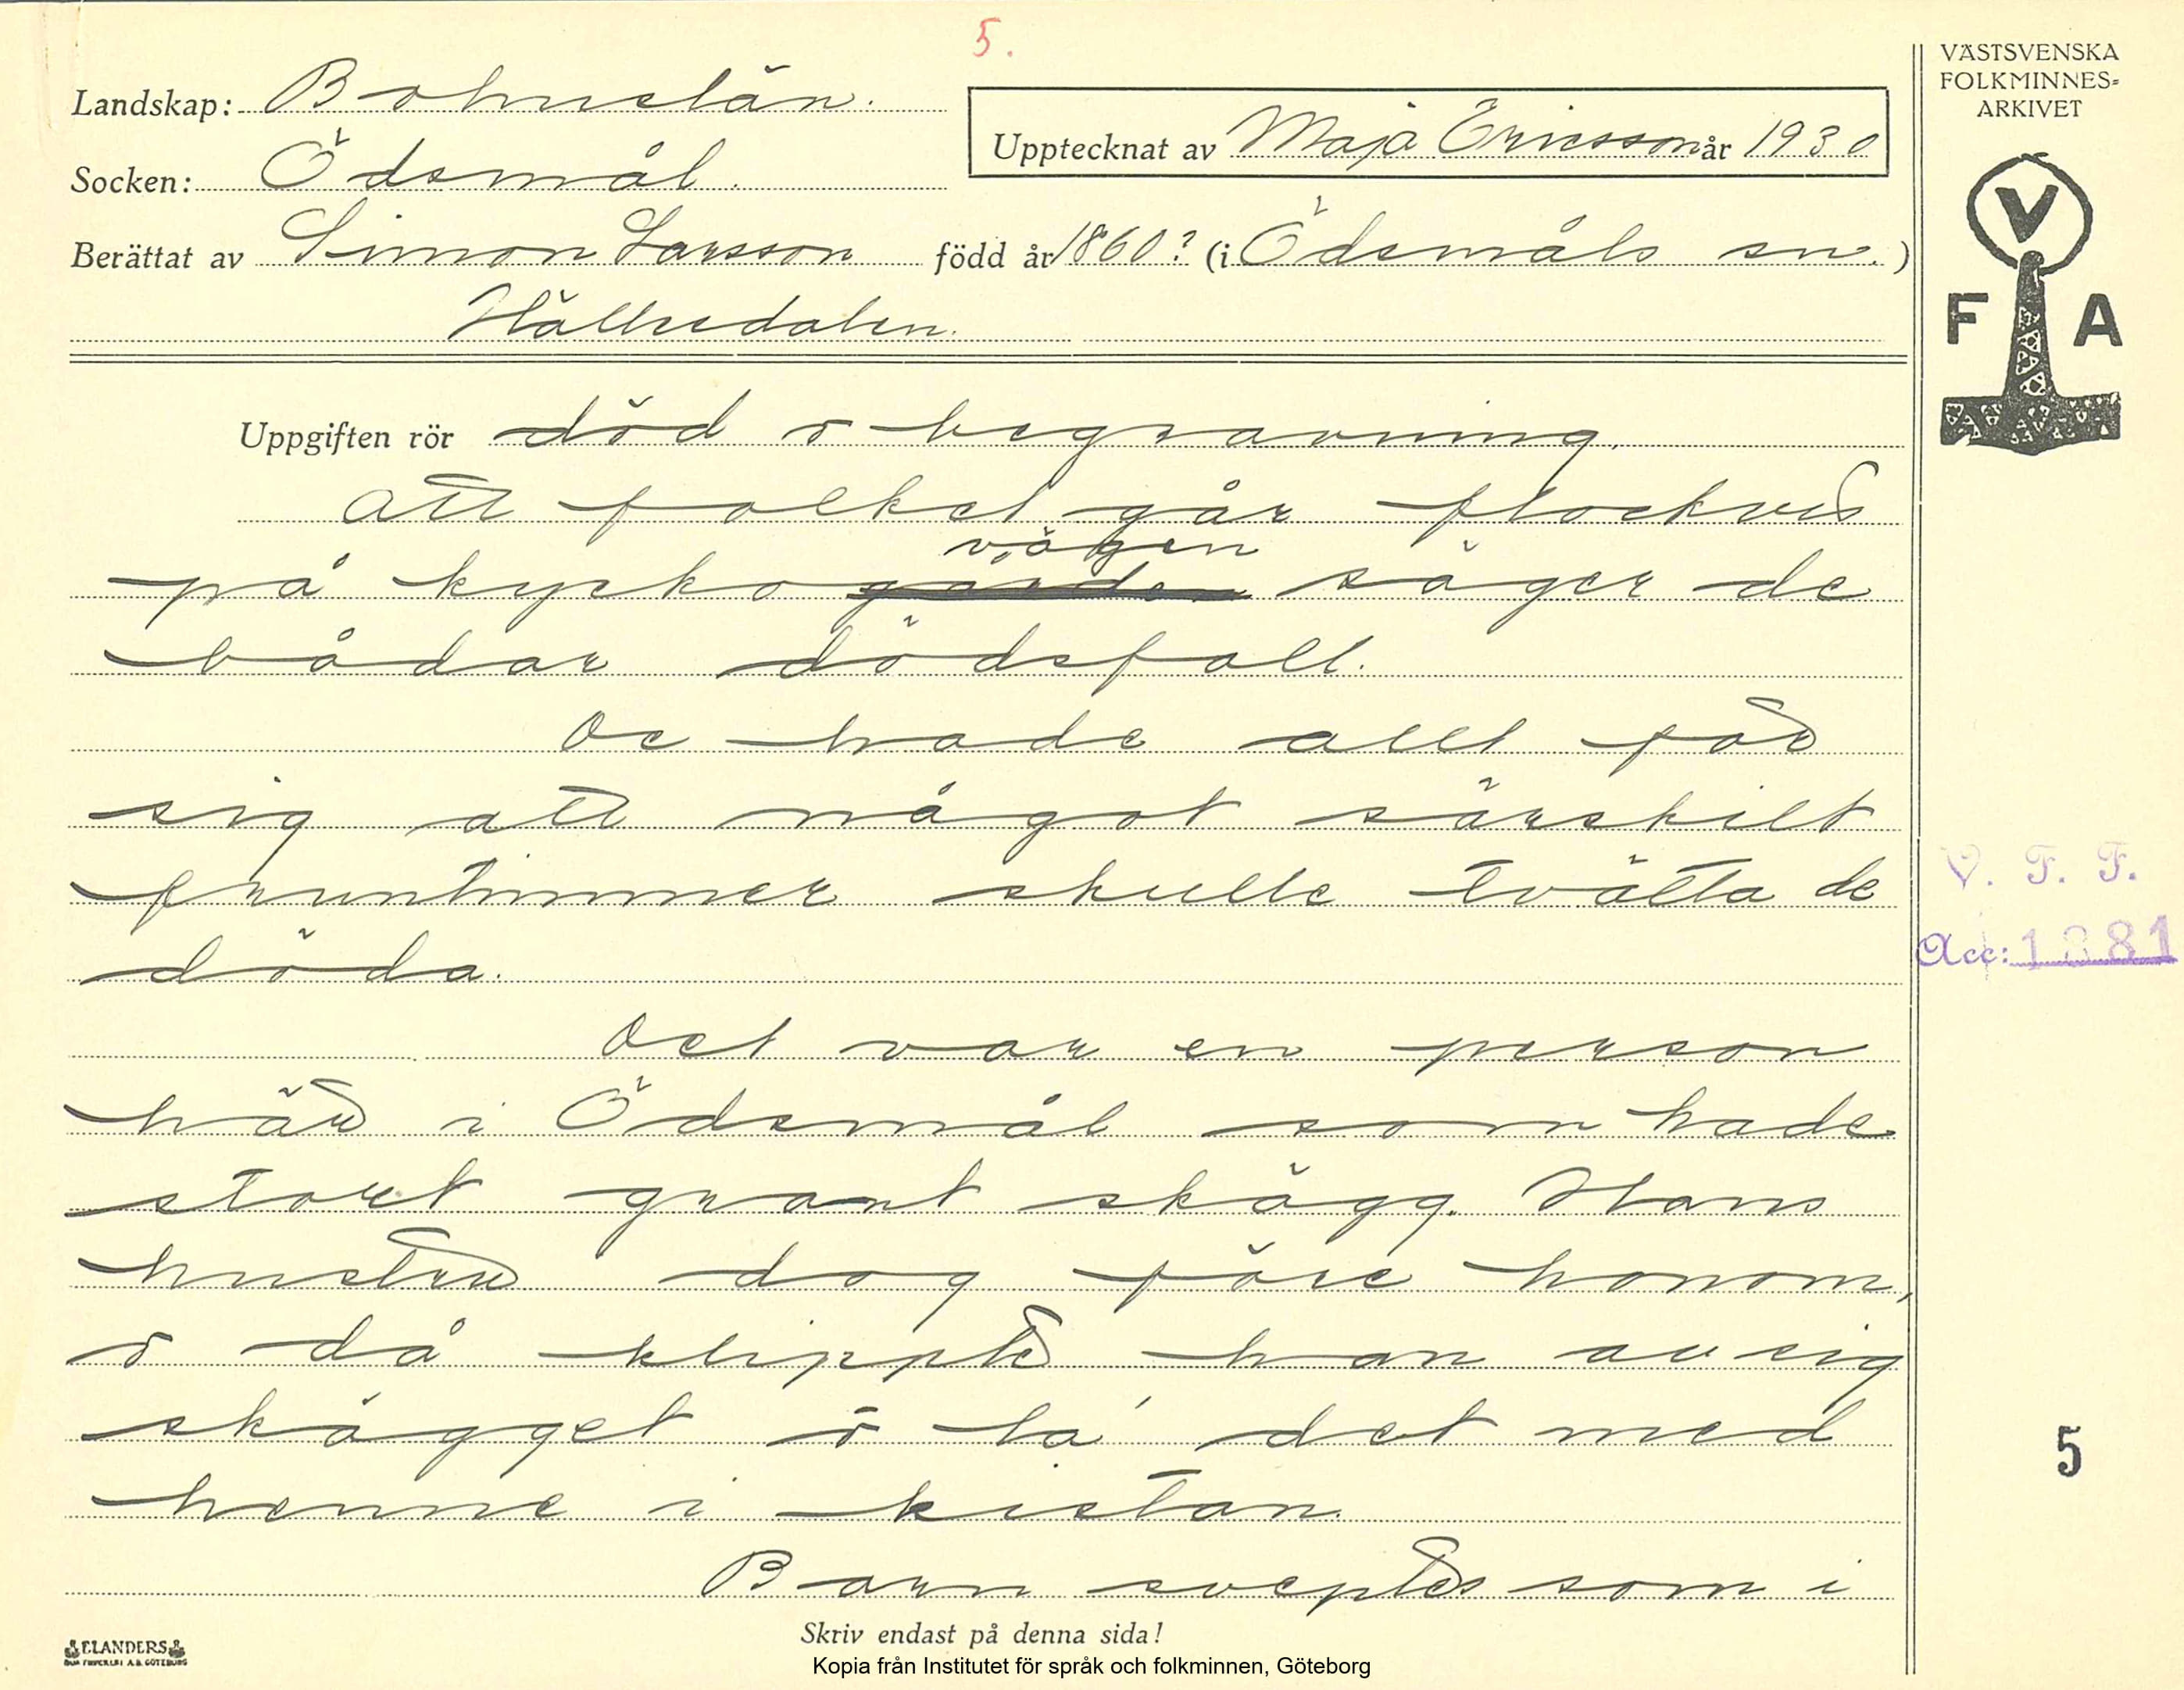 5.
Landskap: Bohuslän.
Socken: Ödsmål.
Upptecknat av Maja Ericsson år 1930
Berättat av Simon Larsson född år 1860? (i Ödsmåls sn.)
Hällredalen.
VÄSTSVENSKA
FOLKMINNES=
ARKIVET
V
F A
Uppgiften rör död o begravning.
Att folket går flockvis
vägen
på kyrkogården säger de
bådar dödsfall.
De hade allt för
sig att något särskilt
fruntimmer skulle tvätta de
döda.
Det var en person
här i Ödsmål som hade
stort grant skägg. Hans
hustru dog före honom,
o då klippte han av sig
skägget o la' det med
henne i kistan.
Barn sveptes som i
V. F. F.
Acc: 1881
5
Skriv endast på denna sida!
ELANDERS
Kopia från Institutet för språk och folkminnen, Göteborg